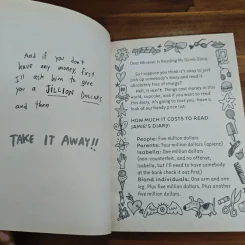 And if you don't
have any money, first
I'll ask him to give
you a JILLION DOLLARS
and then
TAKE IT AWAY!!
Dear Whoever Is Reading My Dumb Diary,
So I suppose you think it's okay to just
pick up somebody's diary and read it
absolutely free of charge?
Well, it isn't. Things cost money in this
world, sucker, and if you want to read
this diary, it's going to cost you. Here's a
look at our handy price list:
HOW MUCH IT COSTS TO READ
JAMIE'S DIARY:
People: Five million dollars
Parents: Four million dollars (apiece)
Isabella: One million dollars
(non-counterfeit, and no offense,
Isabella, but I'll need to have somebody
at the bank check it out first)
Blond individuals: One arm and one
leg. Plus five million dollars. Plus another
five million dollars.